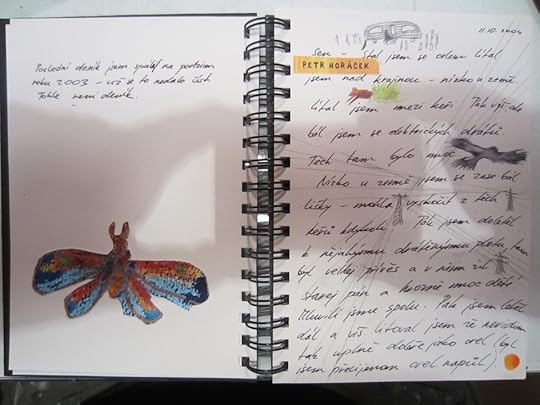 Poslední deník jsem spálil na podzim
roku 2003 - už se to nedalo číst.
Tohle není deník.
11.10.2004
Sen - Stal jsem se orlem lítal
PETR HORÁČEK
jsem nad krajinou - nízko u země
lítal jsem mezi keři. Pak výš ale
bál jsem se elektrických drátů.
Těch tam bylo moc
Nízko u země jsem se zase bál
lišky - mohla vyskočit z těch
keřů kdykoli. Pak jsem doletěl
k nějakýmu drátěnýmu plotu tam
byl velkej přívěs a v něm žil
starej pán a hrozně moc dětí
Mluvili jsme spolu. Pak jsem letěl
dál a litoval jsem že nevidím
tak úplně dobře jako orel (byl
jsem přecijenom orel napůl).